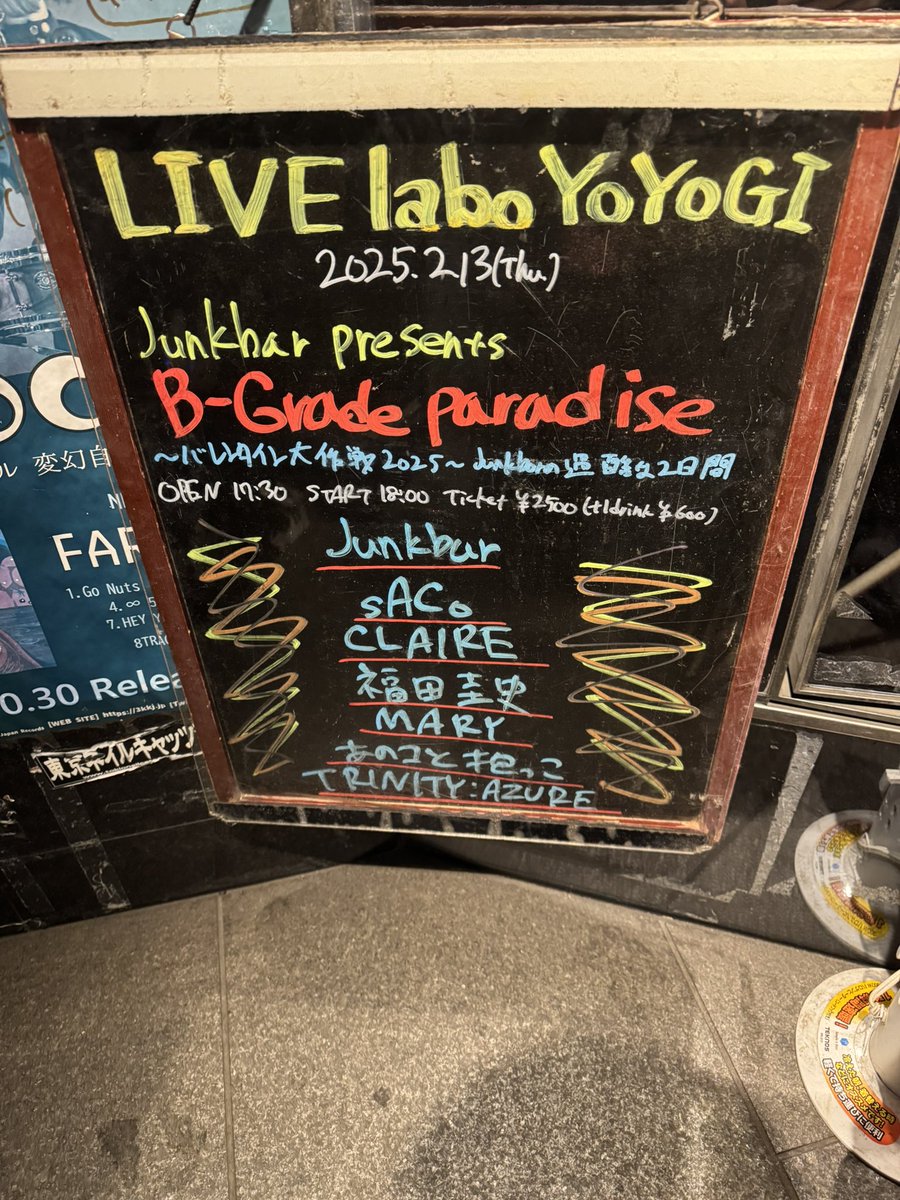 LIVE labo YoYoGI
2025.2.13(Thu.)
Junkbar presents
B-Grade paradise
～バレンタイン大作戦2025～Junkbarの過酷な2日間
OPEN 17:30 START 18:00 Ticket ¥2500(+1drink ¥600)
Junkbar
sACo
CLAIRE
福田圭史
MARY
あのコと抱っこ
TRINITY:AZURE
変幻自
FAR
1.Go Nuts
4.∞ 5
7.HEY Y
8TRAC
0.30 Relea
Japan Records
[WEB SITE] https://3kkj.jp [Tw
東京ボイルキャッツ
TEKNOS